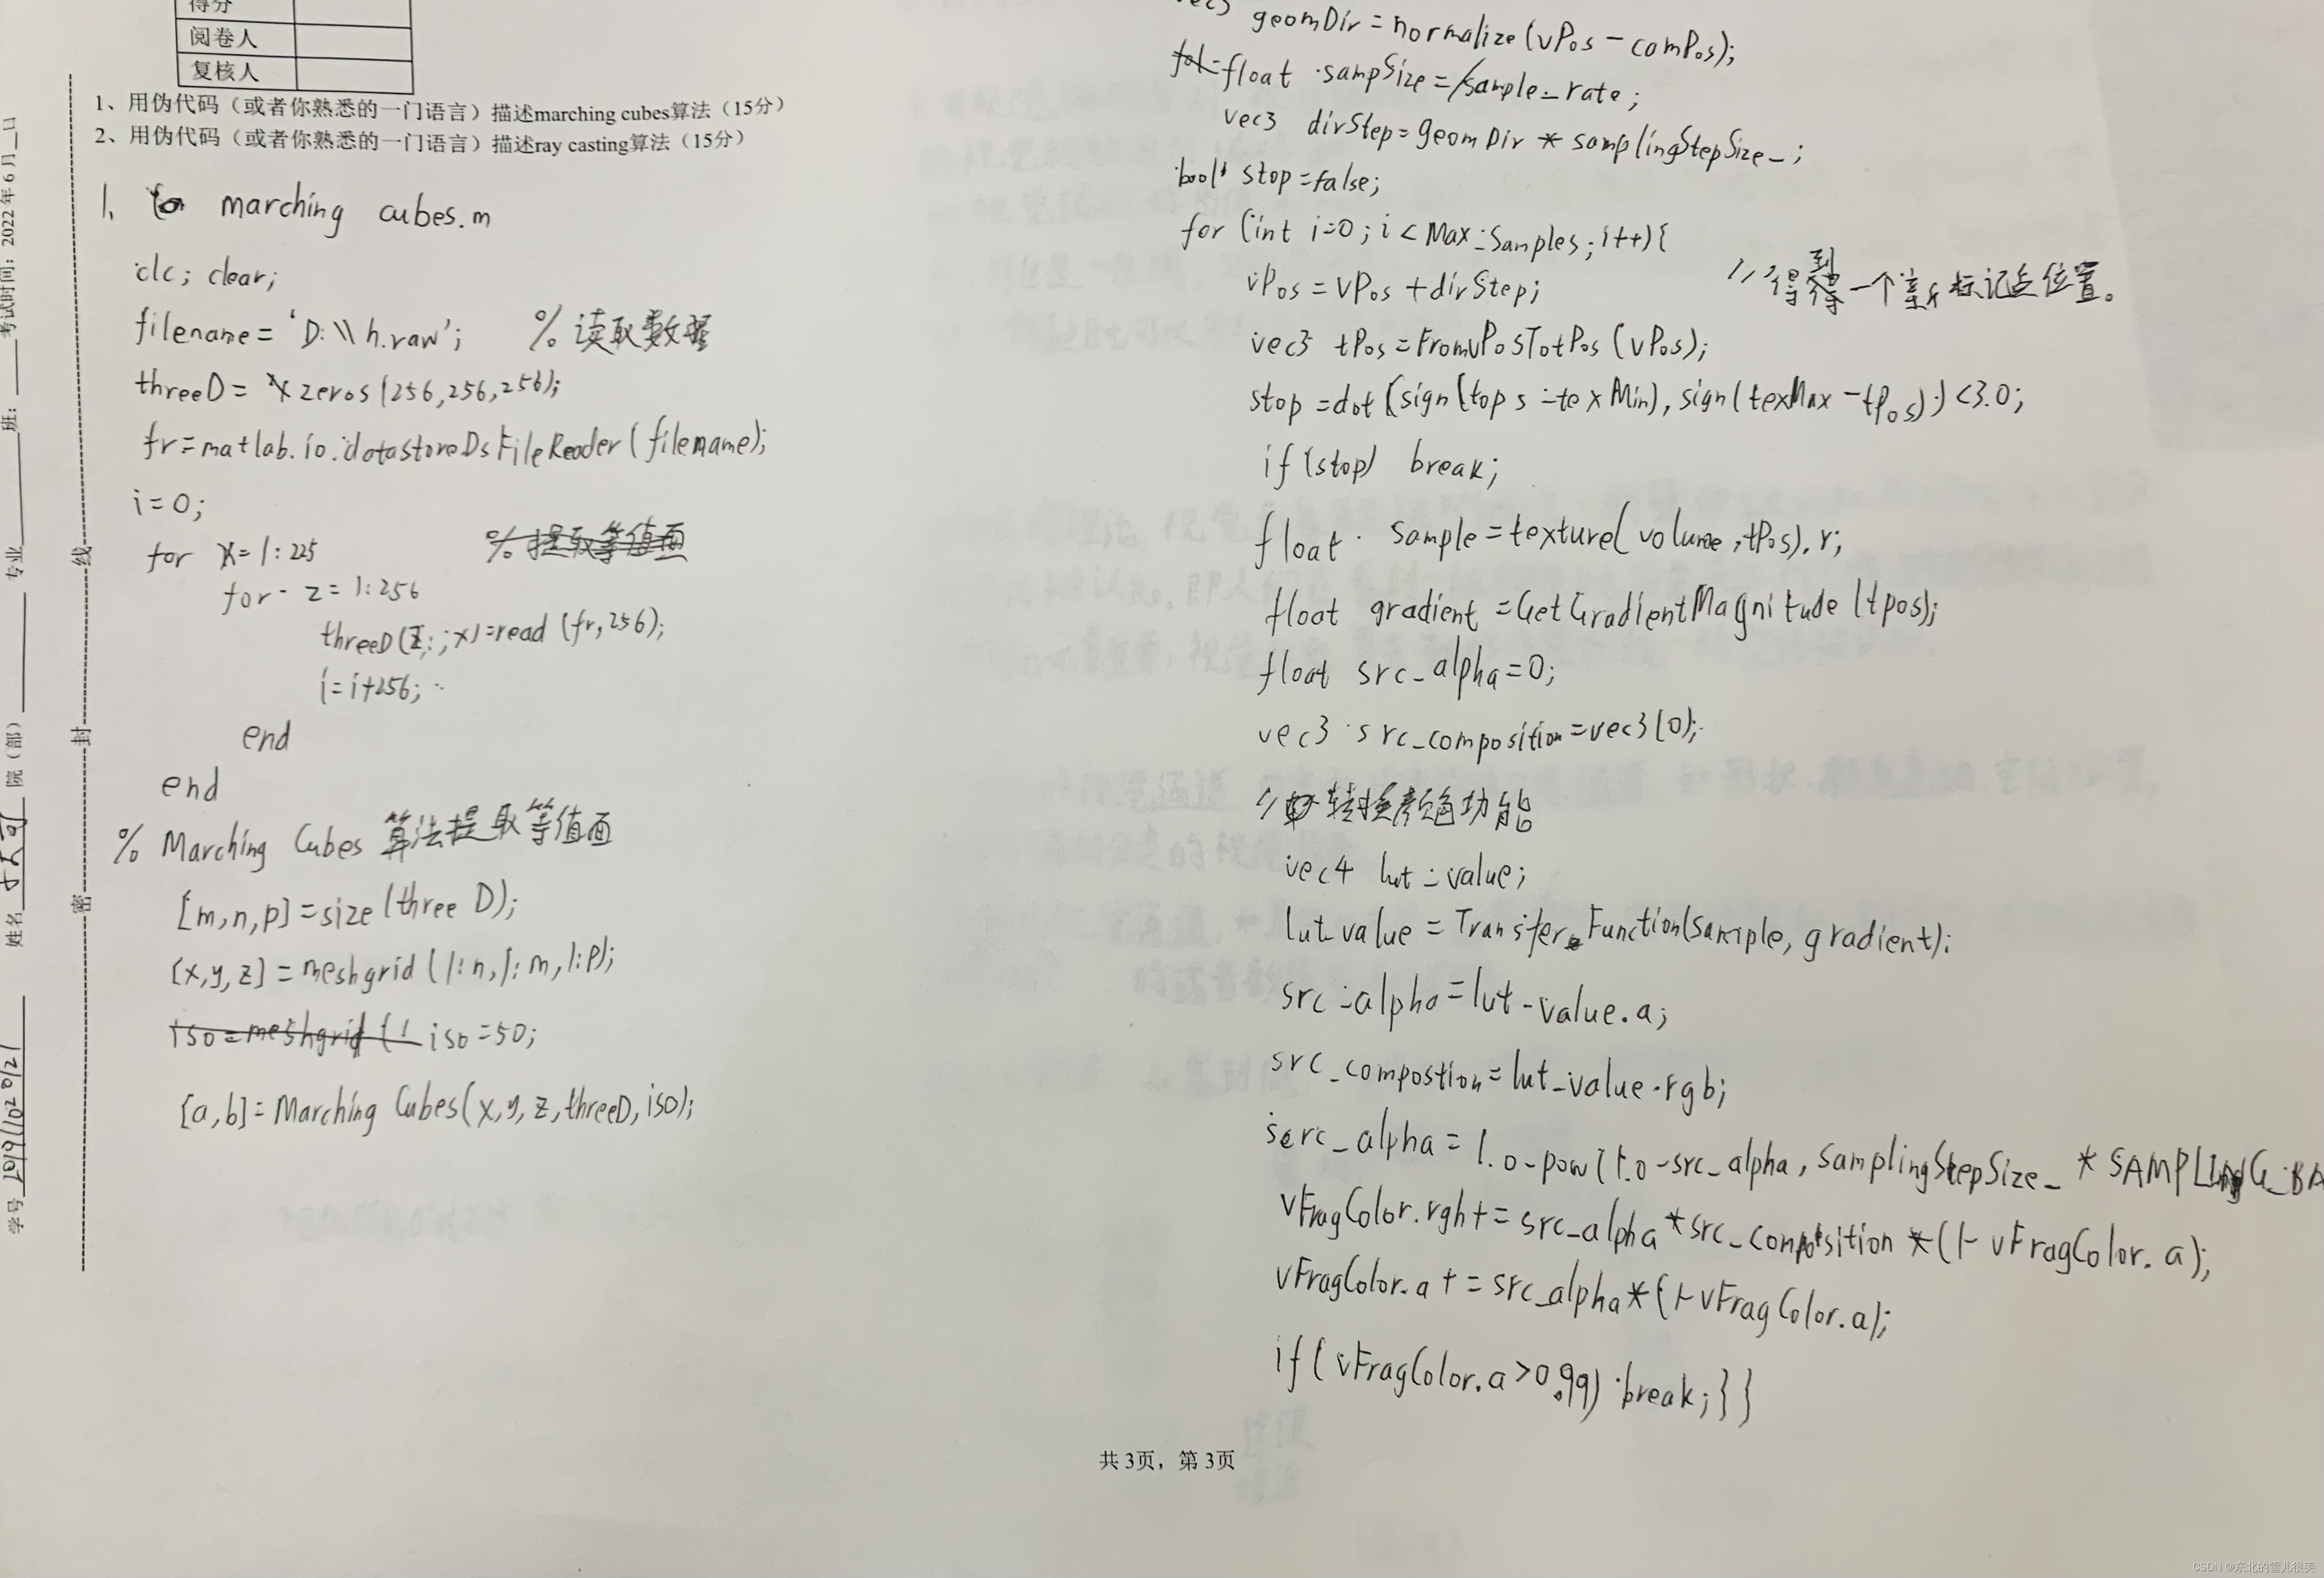 得分
阅卷人
复核人
1、用伪代码（或者你熟悉的一门语言）描述marching cubes算法（15分）
2、用伪代码（或者你熟悉的一门语言）描述ray casting算法（15分）
1、 marching cubes.m
clc; clear;
filename = 'D:\\h.raw'; %读取数据
threeD = zeros(256,256,256);
fr=matlab.io.datastoreDsFileReader(filename);
i=0;
for x=1:225 %提取等值面
for z=1:256
threeD(z,:,x)=read(fr,256);
i=i+256;
end
end
% Marching Cubes 算法提取等值面
[m,n,p]=size(three D);
[x,y,z]=meshgrid(1:n,1:m,1:p);
iso=meshgrid(1 iso=50;
[a,b]=Marching Cubes(x,y,z,threeD,iso);
vec3 geomDir=normalize(vPos-comPos);
float sampSize=/sample_rate;
vec3 dirStep=geomDir*samplingStepSize_;
bool stop=false;
for (int i=0;i<Max_Samples;i++){
vPos=vPos+dirStep; //得到一个 标记点位置。
vec3 tPos=FromvPosTotPos(vPos);
stop=dot(sign(tops-texMin),sign(texMax-tPos))<3.0;
if(stop) break;
float sample=texture(volume,tPos).r;
float gradient=GetGradientMagnitude(tpos);
float src_alpha=0;
vec3 src_composition=vec3(0);
//转换颜色功能
vec4 lut_value;
lut_value=Transfer_Function(sample,gradient);
src_alpha=lut_value.a;
src_compostion=lut_value.rgb;
serc_alpha=1.0-pow(1.0-src_alpha,samplingStepSize_*SAMPLING_BA
vFragColor.rgh+=src_alpha*src_composition*(1-vFragColor.a);
vFragColor.a+=src_alpha*(1-vFragColor.a);
if(vFragColor.a>0.99) break;}}
共 3页，第 3页
考试时间：2022 年 6 月 日
班：
专业
院（部）
姓名
学号
密 封 线
CSDN @东北的雪儿很美